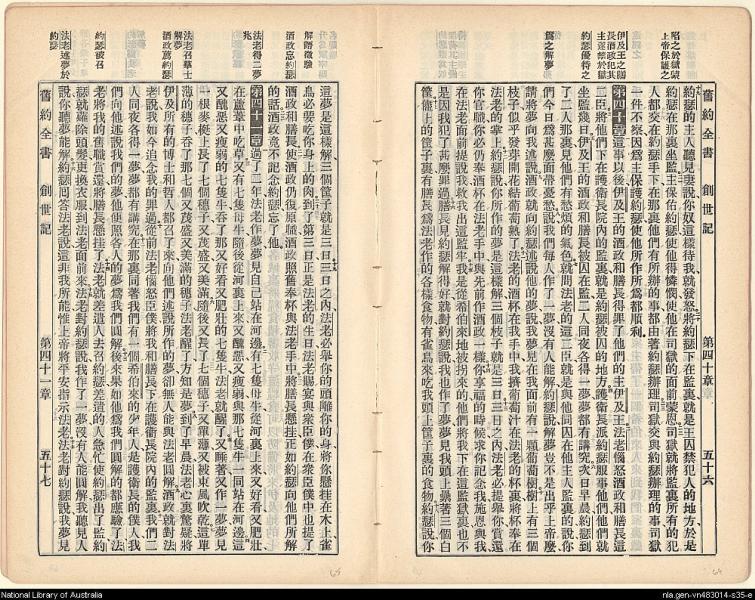 陷之於獄蒙
上帝保護之
伊及王之膳
長酒政犯其
主遂禁於獄
約瑟優待之
爲之解夢
舊約全書 創世記 第四十章 五十六
約瑟的主人聽見妻說你奴這樣待我就發怒將約瑟下在監裏就是王囚禁犯人的地方於是
約瑟在那裏坐監主保佑約瑟使他得憐憫使他在司獄的面前蒙恩司獄就將監裏所有的犯
人都交在約瑟手下在那裏他們有所辦的事都由著約瑟辦理司獄交與約瑟辦理的事司獄
一件不察因爲主保護約瑟使他所作所爲都順利
第四十章這事以後伊及王的酒政和膳長得罪了他們的主伊及王法老惱怒酒政和膳長這
二臣將他們下在護衛長院內的監裏就是約瑟被囚的地方護衛長派約瑟服事他們他們就
坐監幾日伊及王的酒政和膳長被囚在監二人同夜各得一夢夢都有講究次日早晨約瑟到
了二人那裏見他們有愁煩的氣色就問法老的這二臣就是與他同囚在他主人監裏的說你
們今日爲甚麼面帶憂愁說我們每人作了一夢沒有人能解約瑟說解夢豈不是出乎上帝麼
請將夢向我述說酒政就向約瑟述說他的夢說我夢見在我面前有一顆葡萄樹樹上有三個
枝子似乎發芽開花結葡萄熟了法老的酒杯在我手中我擠葡萄汁在法老的杯裏將杯奉在
法老的掌上約瑟說你所作的夢是這樣解三個枝子就是三日三日之內法老必提舉你賞還
你官職你必仍奉酒杯在法老手中與先前作酒政一樣你享福的時候求你記念我施恩與我
在法老面前提說我救我出這監牢我是從希伯來地被拐來的他們將我下在這監獄裏也不
是因我犯了甚麼罪過膳長見約瑟解得好就對約瑟說我也作了夢夢見我頭上摞著三個白
筐籬上的筐子裏有膳長爲法老作的各樣食物有雀鳥來吃我頭上筐子裏的食物約瑟說你
解膳長徵驗
酒政忘約瑟
法老得二夢
兆
法老召舉士
解夢
酒政薦約瑟
約瑟被召
法老述夢於
約瑟
這夢是這樣解三個筐子就是三日三日之內法老必舉你的頭離你的身將你懸挂在木上雀
鳥必要吃你身上的肉到了第三日正是法老的生日法老賜宴與衆臣僕在衆臣僕中也提了
酒政和膳長使酒政仍復原職酒政照舊奉杯與法老手中將膳長懸挂正如約瑟向他們所解
的話酒政竟不記念約瑟忘了他
第四十一章過了二年法老作夢夢見自己站在河邊有七隻母牛從河裏上來又好看又肥壯
在蘆葦中吃草又有七隻母牛隨後從河裏上來又醜惡又瘦弱與那七隻牛一同站在河邊這
又醜惡又瘦弱的七隻牛吞了那又好看又肥壯的七隻牛法老就醒了又睡著又作一夢夢見
一根麥梃上長了七個穗子又茂盛又美滿隨後又長了七個穗子又單薄又被東風吹乾這單
薄的穗子吞了那七個又茂盛又美滿的穗子法老醒了方知是夢到了早晨法老心裏驚疑將
伊及所有的博士和哲人都召了來向他們述說所作的夢卻無人能與法老圓解酒政就對法
老說我如今追念我的罪過從前法老惱怒臣僕將我和膳長下在護衛長院內的監裏我們二
人同夜各得一夢夢都有講究在那裏同著我們有一個希伯來的少年人是護衛長的僕人我
們向他述說我們的夢他便照各人的夢爲我們圓解後來果如他爲我們圓解的都應驗了法
老將我的舊職賞還將膳長懸挂了法老就差遣人去召約瑟差遣的人急忙使約瑟出了監約
瑟就薙除頭髮更換衣服到法老面前來法老對約瑟說我作了一夢沒有人能圓解我聽見人
說你聽夢能解約瑟回答法老說這非我所能惟上帝將平安指示法老法老對約瑟說我夢見
舊約全書 創世記 第四十一章 五十七
National Library of Australia
nla.gen-vn483014-s35-e